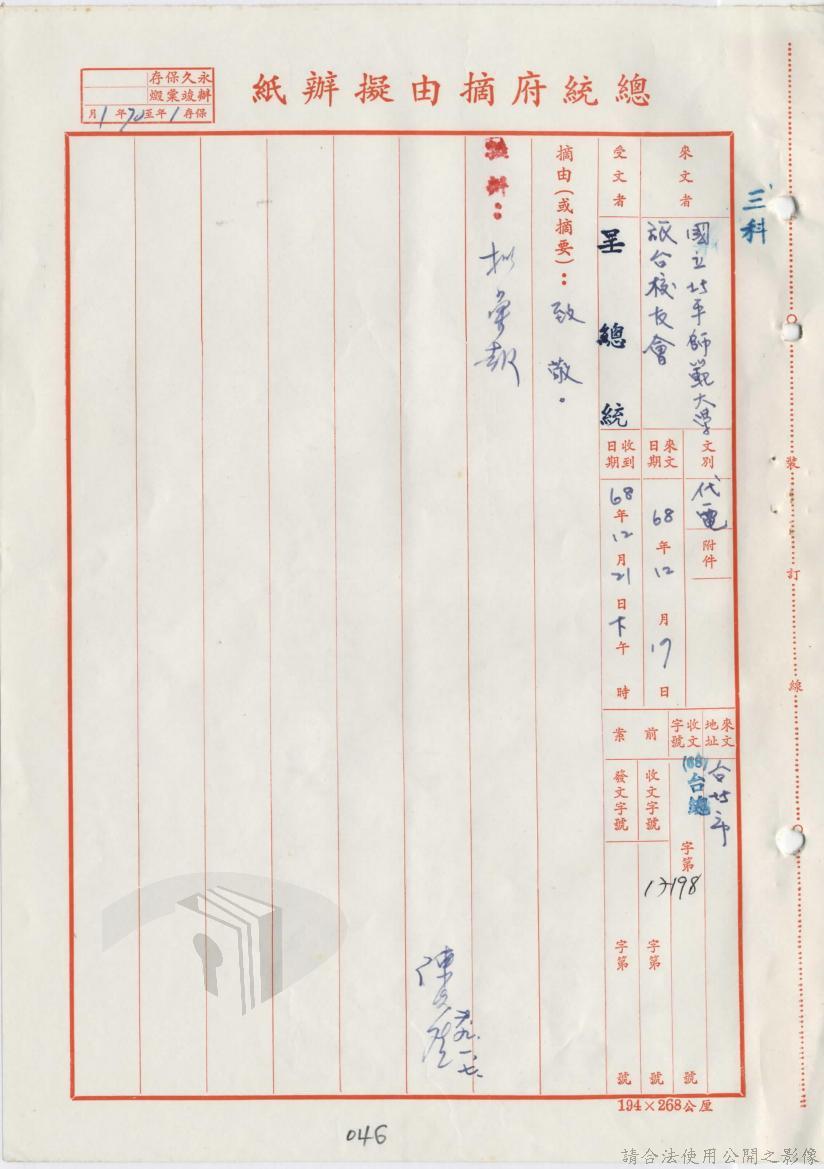 總統府摘由擬辦紙
永久保存
辦竣彙燬
保存1年至70年1月
三科
來文者
國立北平師範大學
旅台校友會
文別
代電
附件
來文日期
68年12月17日
來文地址
台北市
收文字號
(68)台總
字第
號
受文者
呈總統
收到日期
68年12月21日下午
時
前案
收文字號
字第
號
發文字號
字第
號
摘由(或摘要):致敬。
擬辦:
擬彙報
六九.一.七.
裝
訂
線
194×268公厘
046
請合法使用公開之影像